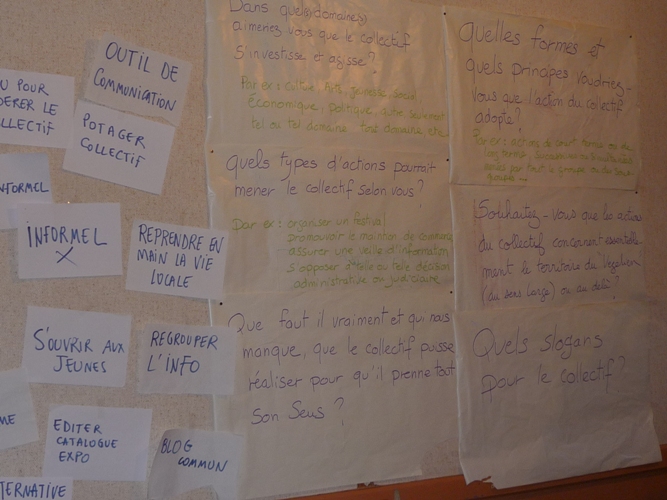 OUTIL DE
COMMUNICATION
U POUR
LE
LLECTIF
POTAGER
COLLECTIF
NFORMEL
INFORMEL
X
REPRENDRE EN
MAIN LA VIE
LOCALE
S'OUVRIR AUX
JEUNES
REGROUPER
L'INFO
ME
EDITER
CATALOGUE
EXPO
BLOG
COMMUN
TERNATIVE
Dans quel(s) domaine(s)
aimeriez vous que le collectif
s'investisse et agisse ?
Par ex : culture, Arts, jeunesse, social,
économique, politique, autre seulement
tel ou tel domaine, tout domaine, etc
Quels types d'actions pourrait
mener le collectif selon vous ?
Par ex : organiser un festival
promouvoir le maintien de
assurer une veille d'information
s'opposer à telle ou telle décision
administrative ou judiciaire
Que faut il vraiment et qui nous
manque, que le collectif puisse
réaliser pour qu'il prenne tout
son Sens ?
Quelles formes et
quels principes voudriez-
vous que l'action du collectif
adopte ?
Par ex : actions de court terme ou de
long terme,
par tout le groupe ou des sous-
groupes
Souhaitez-vous que les actions
du collectif concernent essentielle-
ment le territoire du
(au sens large) ou au delà ?
Quels slogans
pour le collectif ?